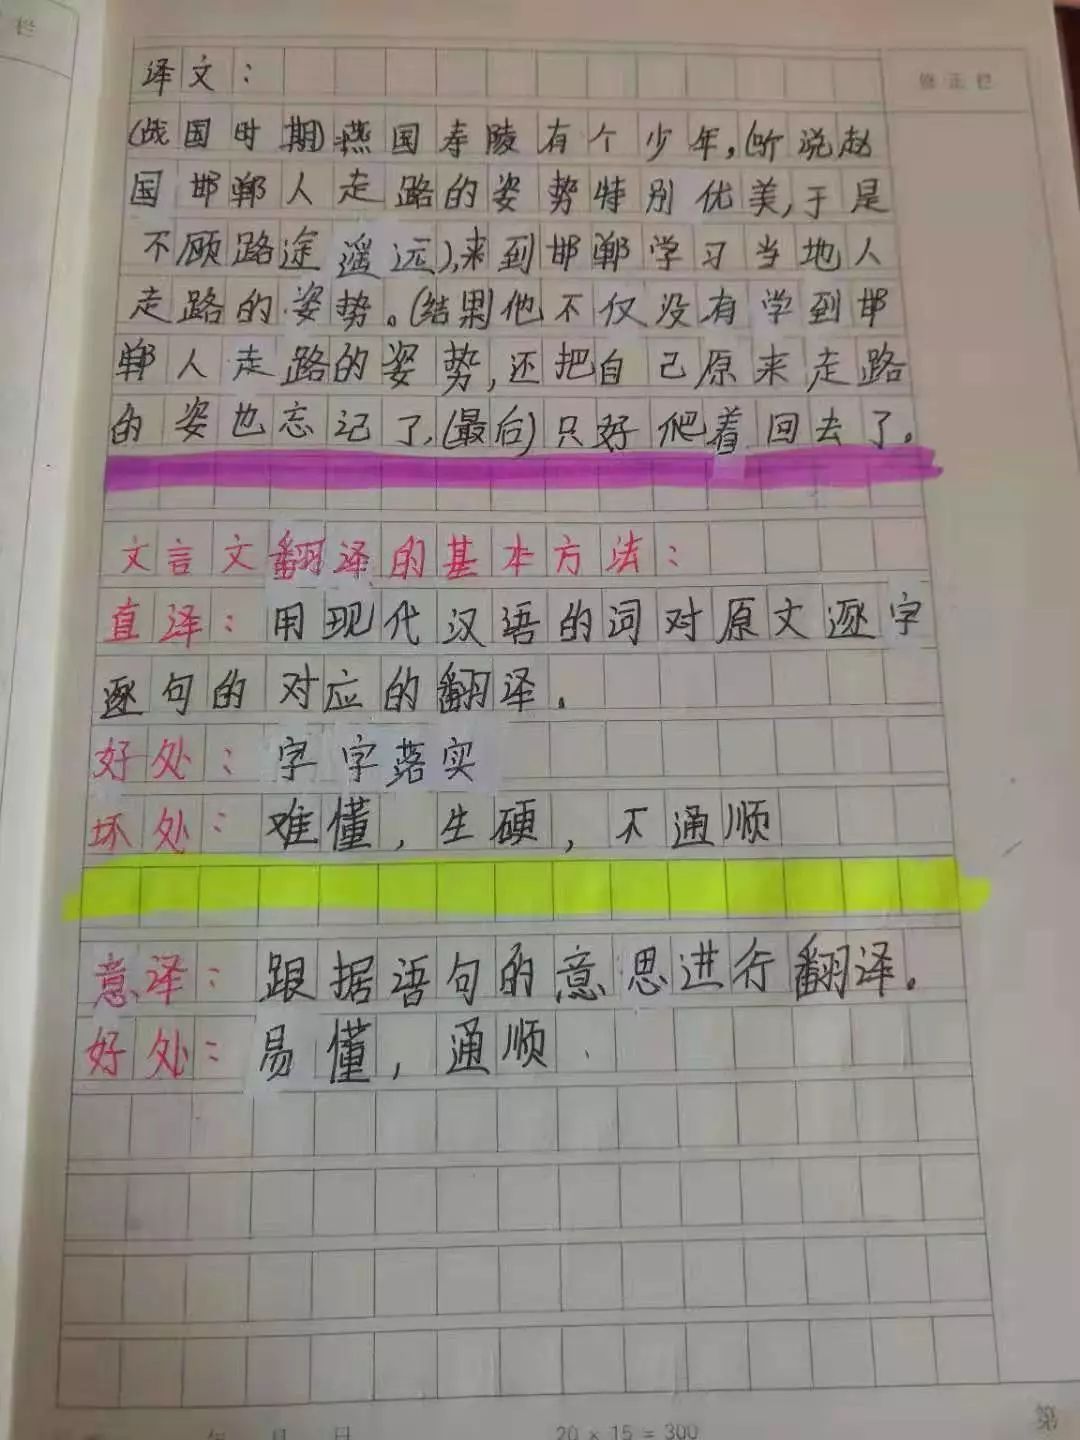 栏
修正栏
译文：
(战国时期)燕国寿陵有个少年,(听说赵
国邯郸人走路的姿势特别优美,于是
不顾路途遥远),来到邯郸学习当地人
走路的姿势。(结果)他不仅没有学到邯
郸人走路的姿势,还把自己原来走路
的姿也忘记了,(最后)只好爬着回去了。
文言文翻译的基本方法：
直译：用现代汉语的词对原文逐字
逐句的对应的翻译。
好处：字字落实
坏处：难懂,生硬,不通顺
意译：跟据语句的意思进行翻译。
好处：易懂,通顺
年 月 日 20×15=300 第